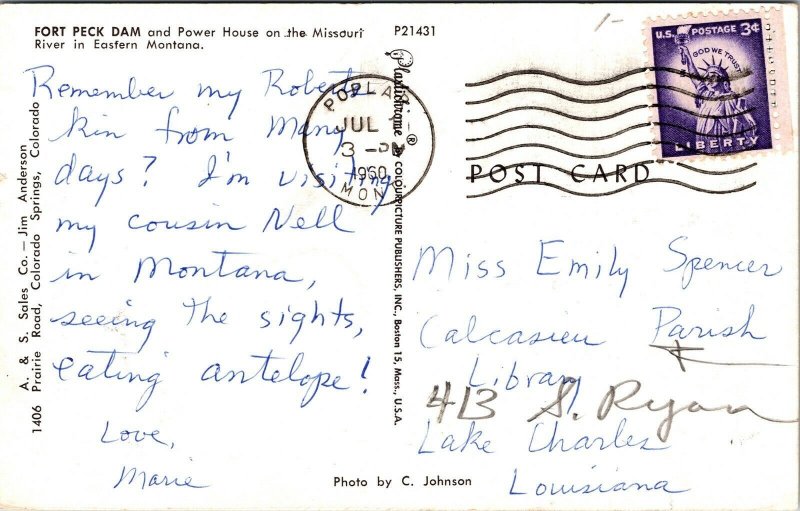 FORT PECK DAM and Power House on the Missouri
River in Eastern Montana.
P21431
Remember my Roberts
kin from many
days? I'm visiting
my cousin Nell
in Montana,
seeing the sights,
eating antelope!
Love,
Marie
A. & S. Sales Co. — Jim Anderson
1406 Prairie Road, Colorado Springs, Colorado
Plastichrome ® by COLOURPICTURE PUBLISHERS, INC., Boston 15, Mass., U.S.A.
POPLA
JUL
3 - P
1960
MON
1-
U.S. POSTAGE 3¢
IN GOD WE TRUST
LIBERTY
POST CARD
Miss Emily Spencer
Calcasieu Parish
Library
413 S. Ryan
Lake Charles
Louisiana
Photo by C. Johnson